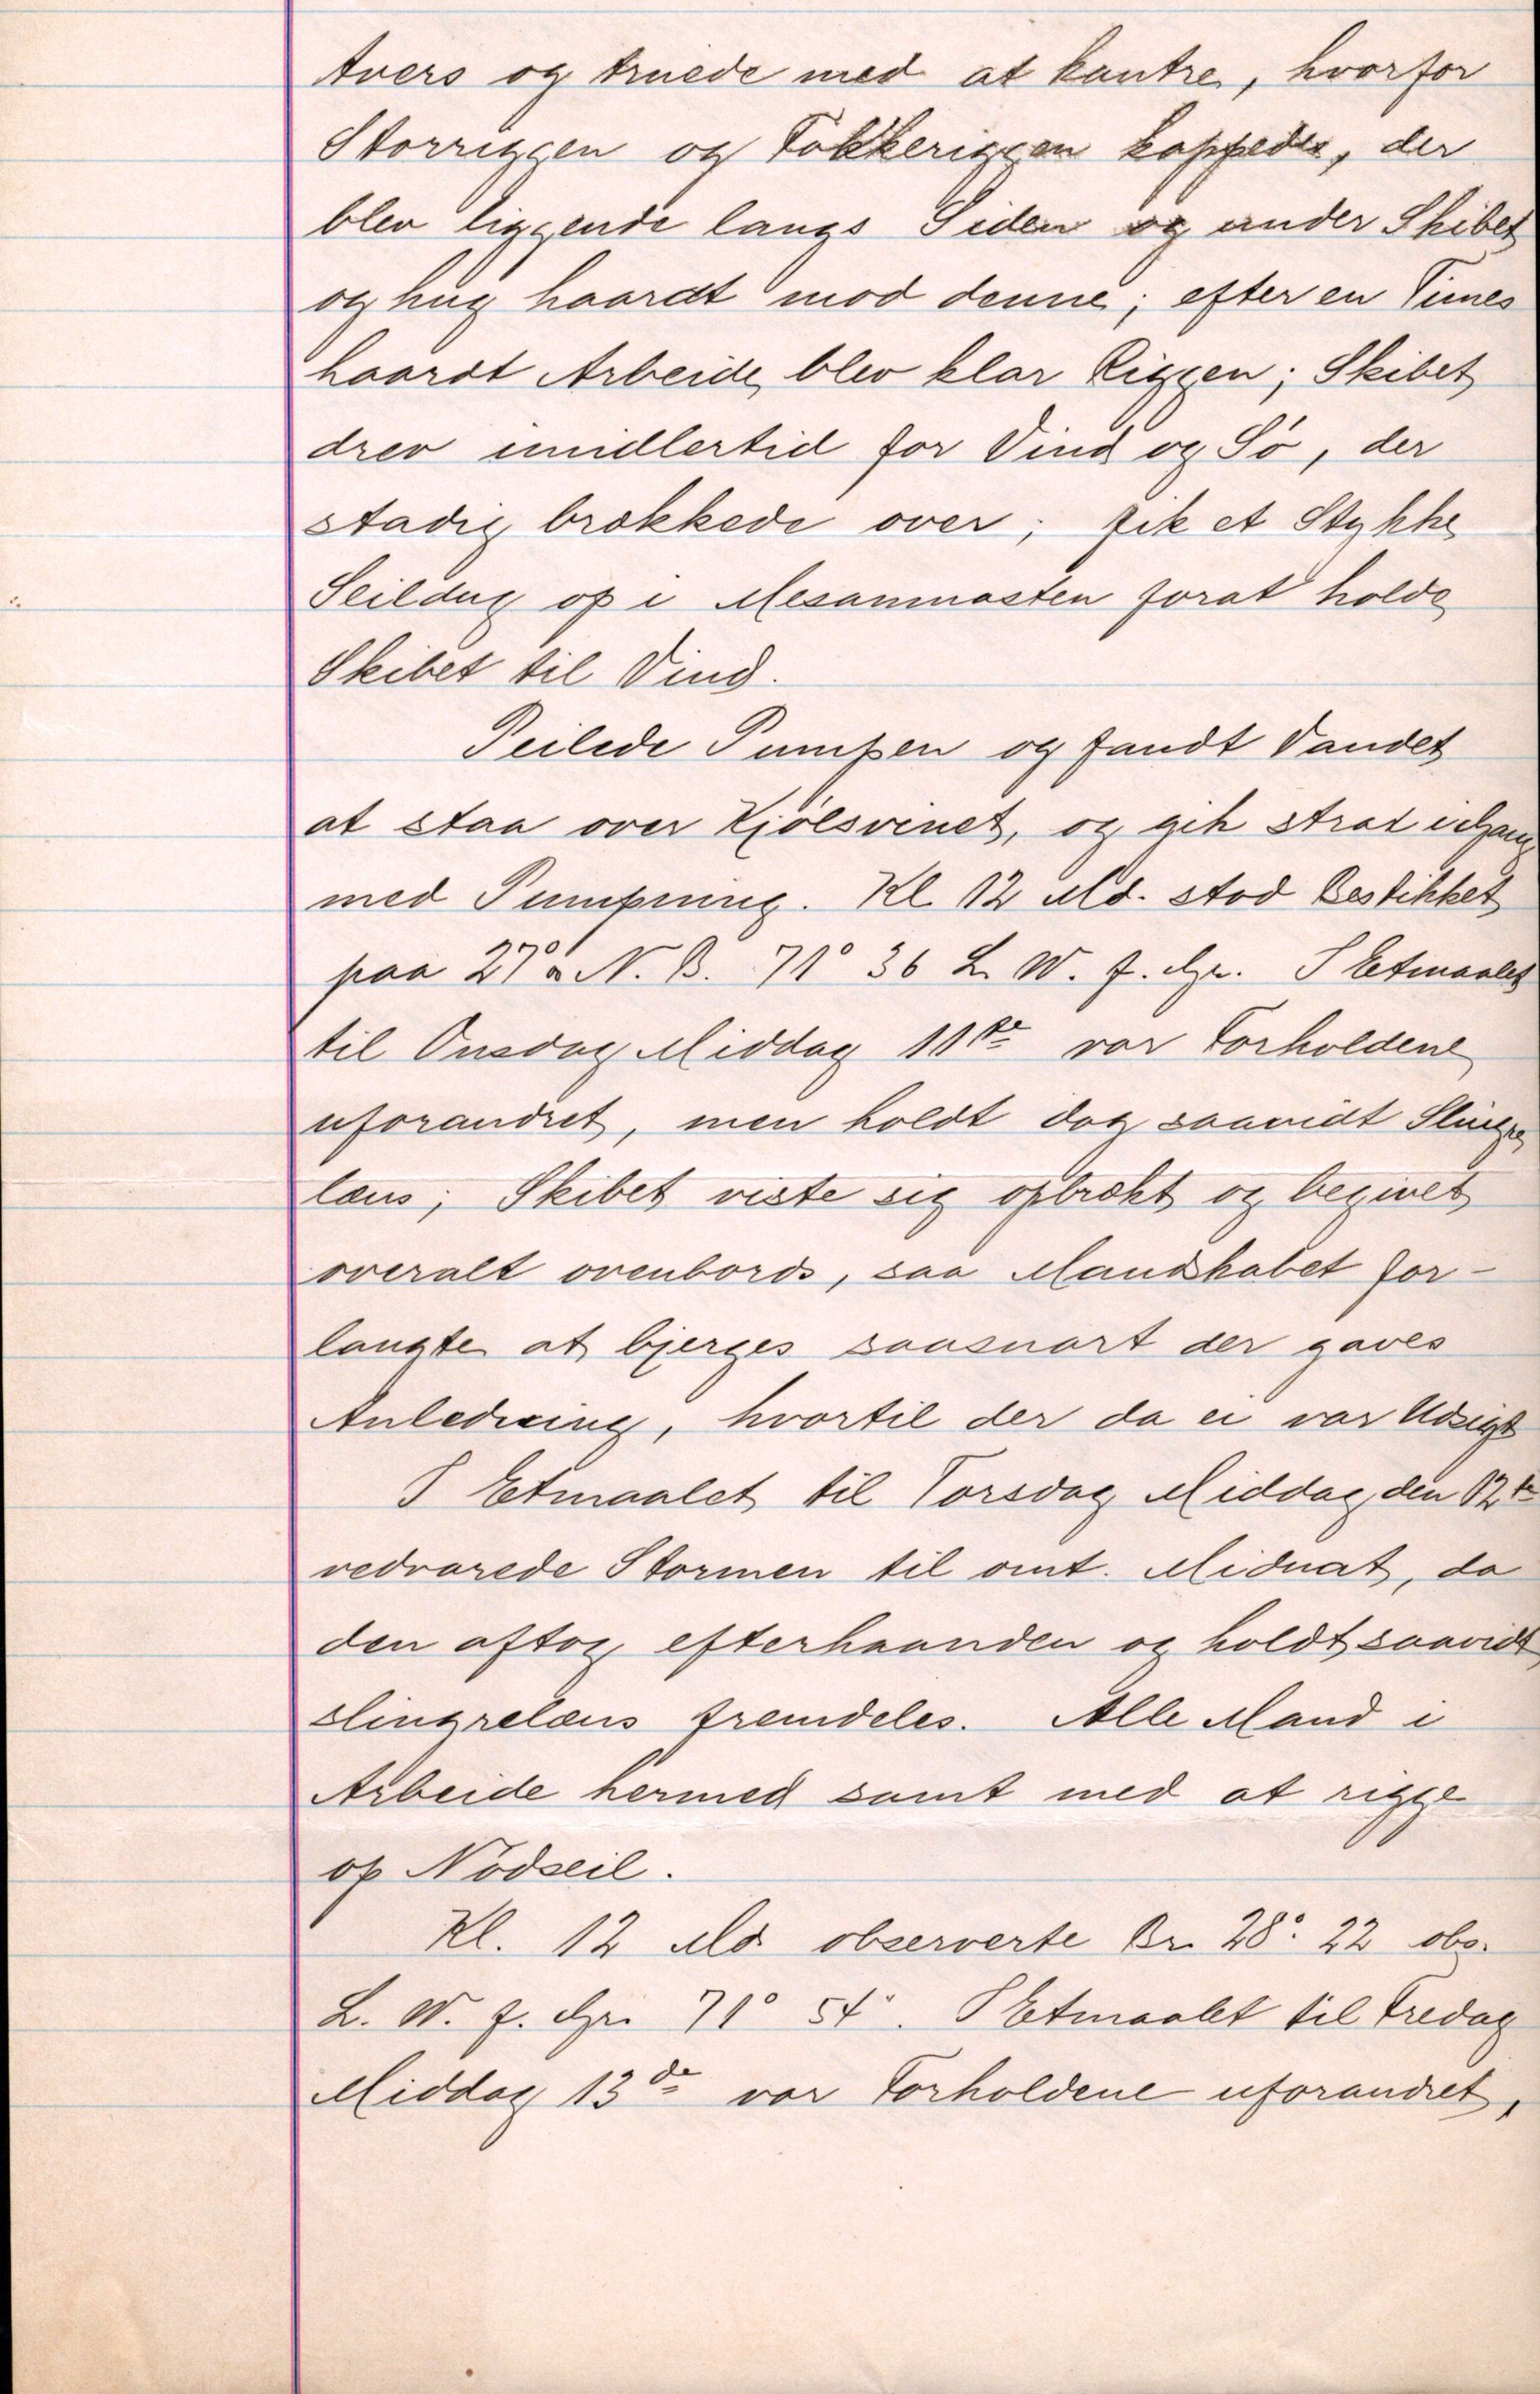 tvers og truede med at kantre, hvorfor
Storriggen og Fokkeriggen kappedes, der
blev liggende langs Siden og under Skibet
og hug haardt mod denne; efter en Times
haardt Arbeide blev klar Riggen; Skibet
drev imidlertid for Vind og Sö, der
stadig brækkede over; fik et Stykke
Seildug op i Mesanmasten forat holde
Skibet til Vind.
Peilede Pumpen og fandt Vandet
at staa over Kjölsvinet, og gik strax igang
med Pumpning. Kl 12 Md. stod Bestikket
paa 27° N. B. 71° 36 L. W. f. Gr. I Etmaalet
til Onsdag Middag 11te var Forholdene
uforandret, men holdt dog saavidt Slingre
læns; Skibet viste sig opbrækt og begivet
overalt ovenbords, saa Mandskabet for-
langte at bjerges saasnart der gaves
Anledning, hvortil der da ei var Udsigt
I Etmaalet til Torsdag Middag den 12te
vedvarede Stormen til omt. Midnat, da
den aftog efterhaanden og holdt saavidt
slingrelæns fremdeles. Alle Mand i
Arbeide hermed samt med at rigge
op Nödseil.
Kl. 12 Md observerte Br. 28° 22 obs.
L. W. f. Gr. 71° 54'. I Etmaalet til Fredag
Middag 13de var Forholdene uforandret,